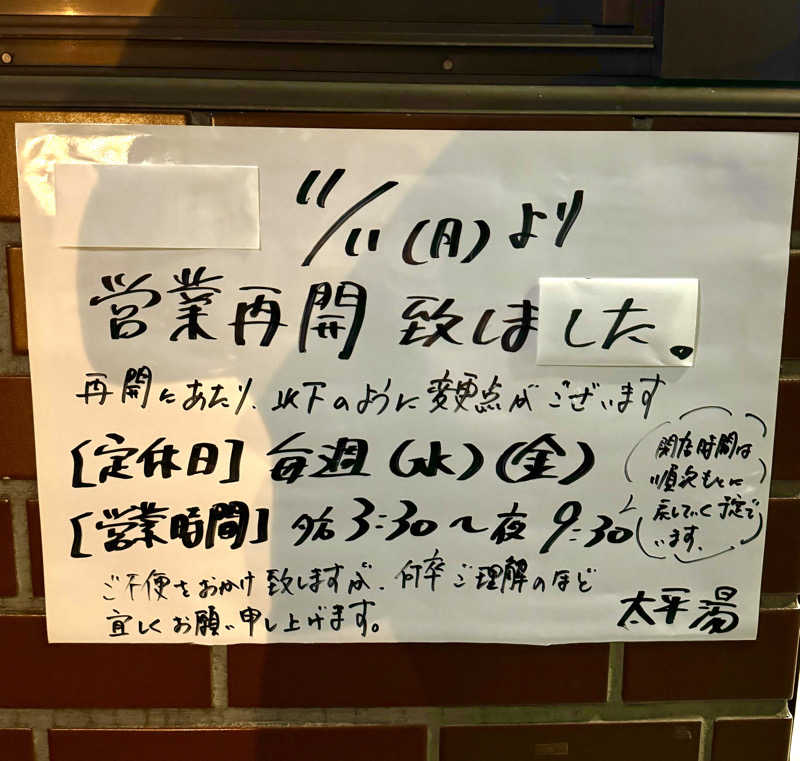 11/11(月)より
営業再開 致しました。
再開にあたり、以下のように変更点がございます
[定休日] 毎週(水)(金)
[営業時間] 夕方3:30〜夜9:30
閉店時間は
順次もとに
戻していく予定で
います。
ご不便をおかけ致しますが、何卒ご理解のほど
宜しくお願い申し上げます。
太平湯